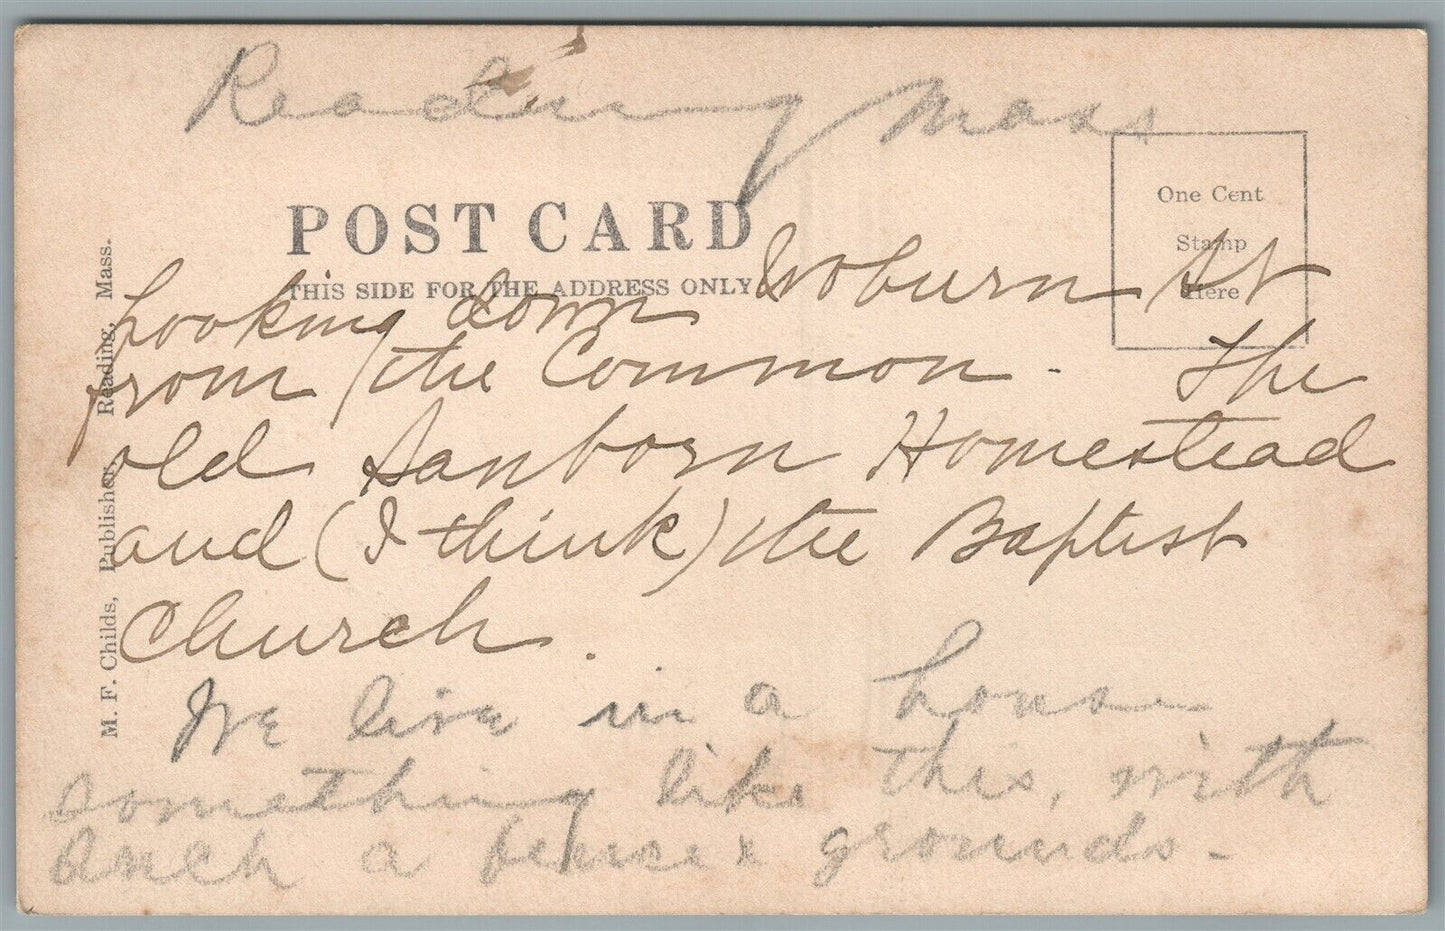 Reading Mass
POST CARD
THIS SIDE FOR THE ADDRESS ONLY
One Cent
Stamp
Here
M. F. Childs, Publisher, Reading, Mass.
Looking down Woburn St
from the Common. The
old Sanborn Homestead
and (I think) the Baptist
Church.
We live in a house
something like this, with
such a fence & grounds.